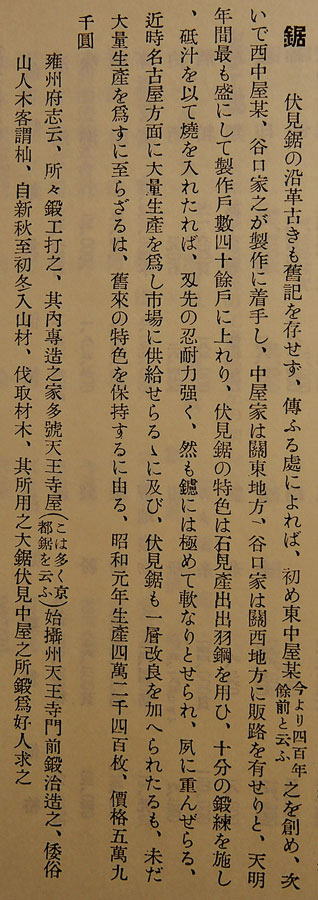 鋸
伏見鋸の沿革古きも舊記を存せず、傳ふる處によれば、初め東中屋某今より四百年餘前と云ふ之を創め、次
いで西中屋某、谷口家之が製作に着手し、中屋家は關東地方、谷口家は關西地方に販路を有せりと、天明
年間最も盛にして製作戶數四十餘戶に上れり、伏見鋸の特色は石見產出出羽鋼を用ひ、十分の鍛練を施し
、砥汁を以て燒を入れたれば、刄先の忍耐力强く、然も鑢には極めて軟なりとせられ、夙に重んぜらる、
近時名古屋方面に大量生產を爲し市場に供給せらるゝに及び、伏見鋸も一層改良を加へられたるも、未だ
大量生產を爲すに至らざるは、舊來の特色を保持するに由る、昭和元年生產四萬二千四百枚、價格五萬九
千圓
雍州府志云、所々鍛工打之、其內專造之家多號天王寺屋(こは多く京都鋸を云ふ)始攝州天王寺門前鍛冶造之、倭俗
山人木客謂杣、自新秋至初冬入山材、伐取材木、其所用之大鋸伏見中屋之所鍛爲好人求之